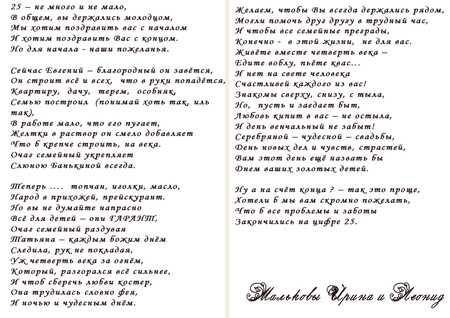 25 – не много и не мало,
В общем, вы держались молодцом,
Мы хотим поздравить вас с началом
И хотим поздравить Вас с концом.
Но для начала - наши пожеланья.

Сейчас Евгений – благородный он завётся,
Он строит всё и всех, что в руки попадётся,
Квартиру, дачу, терем, особняк,
Семью построил (понимай хоть так, иль
так),
В работе мало, что его пугает,
Желтки в раствор он смело добавляет
Что б крепче строить, на века.
Очаг семейный укрепляет
Слюною Банькиной всегда.

Теперь .... топчан, иголки, масло,
Народ в прихожей, прейскурант.
Но вы не думайте напрасно
Всё для детей – они ГАРАНТ,
Очаг семейный раздувая
Татьяна – каждым божим днём
Следила, рук не покладая,
Уж четверть века за огнём,
Который, разгорался всё сильнее,
И чтоб сберечь любви костер,
Она трудилась словно фея,
И ночью и чудесным днём.

Желаем, чтобы Вы всегда держались рядом,
Могли помочь друг другу в трудный час,
И чтобы все семейные преграды,
Конечно - в этой жизни, не для вас.
Живёте вместе четверть века –
Едите воблу, пьёте квас...
И нет на свете человека
Счастливей каждого из вас!
Знакомы сверху, снизу, с тыла,
Но, пусть и заедает быт,
Любовь кипит в вас – не остыла,
И день венчальный не забыт!
Серебряной – чудесной – свадьбы,
День новых дел и чувств, страстей,
Вам этот день ещё назвать бы
Днем ваших золотых детей.

Ну а на счёт конца ? – так это проще,
Хотели б мы вам скромно пожелать,
Что б все проблемы и заботы
Закончились на цифре 25.

Мальковы Ирина и Леонид